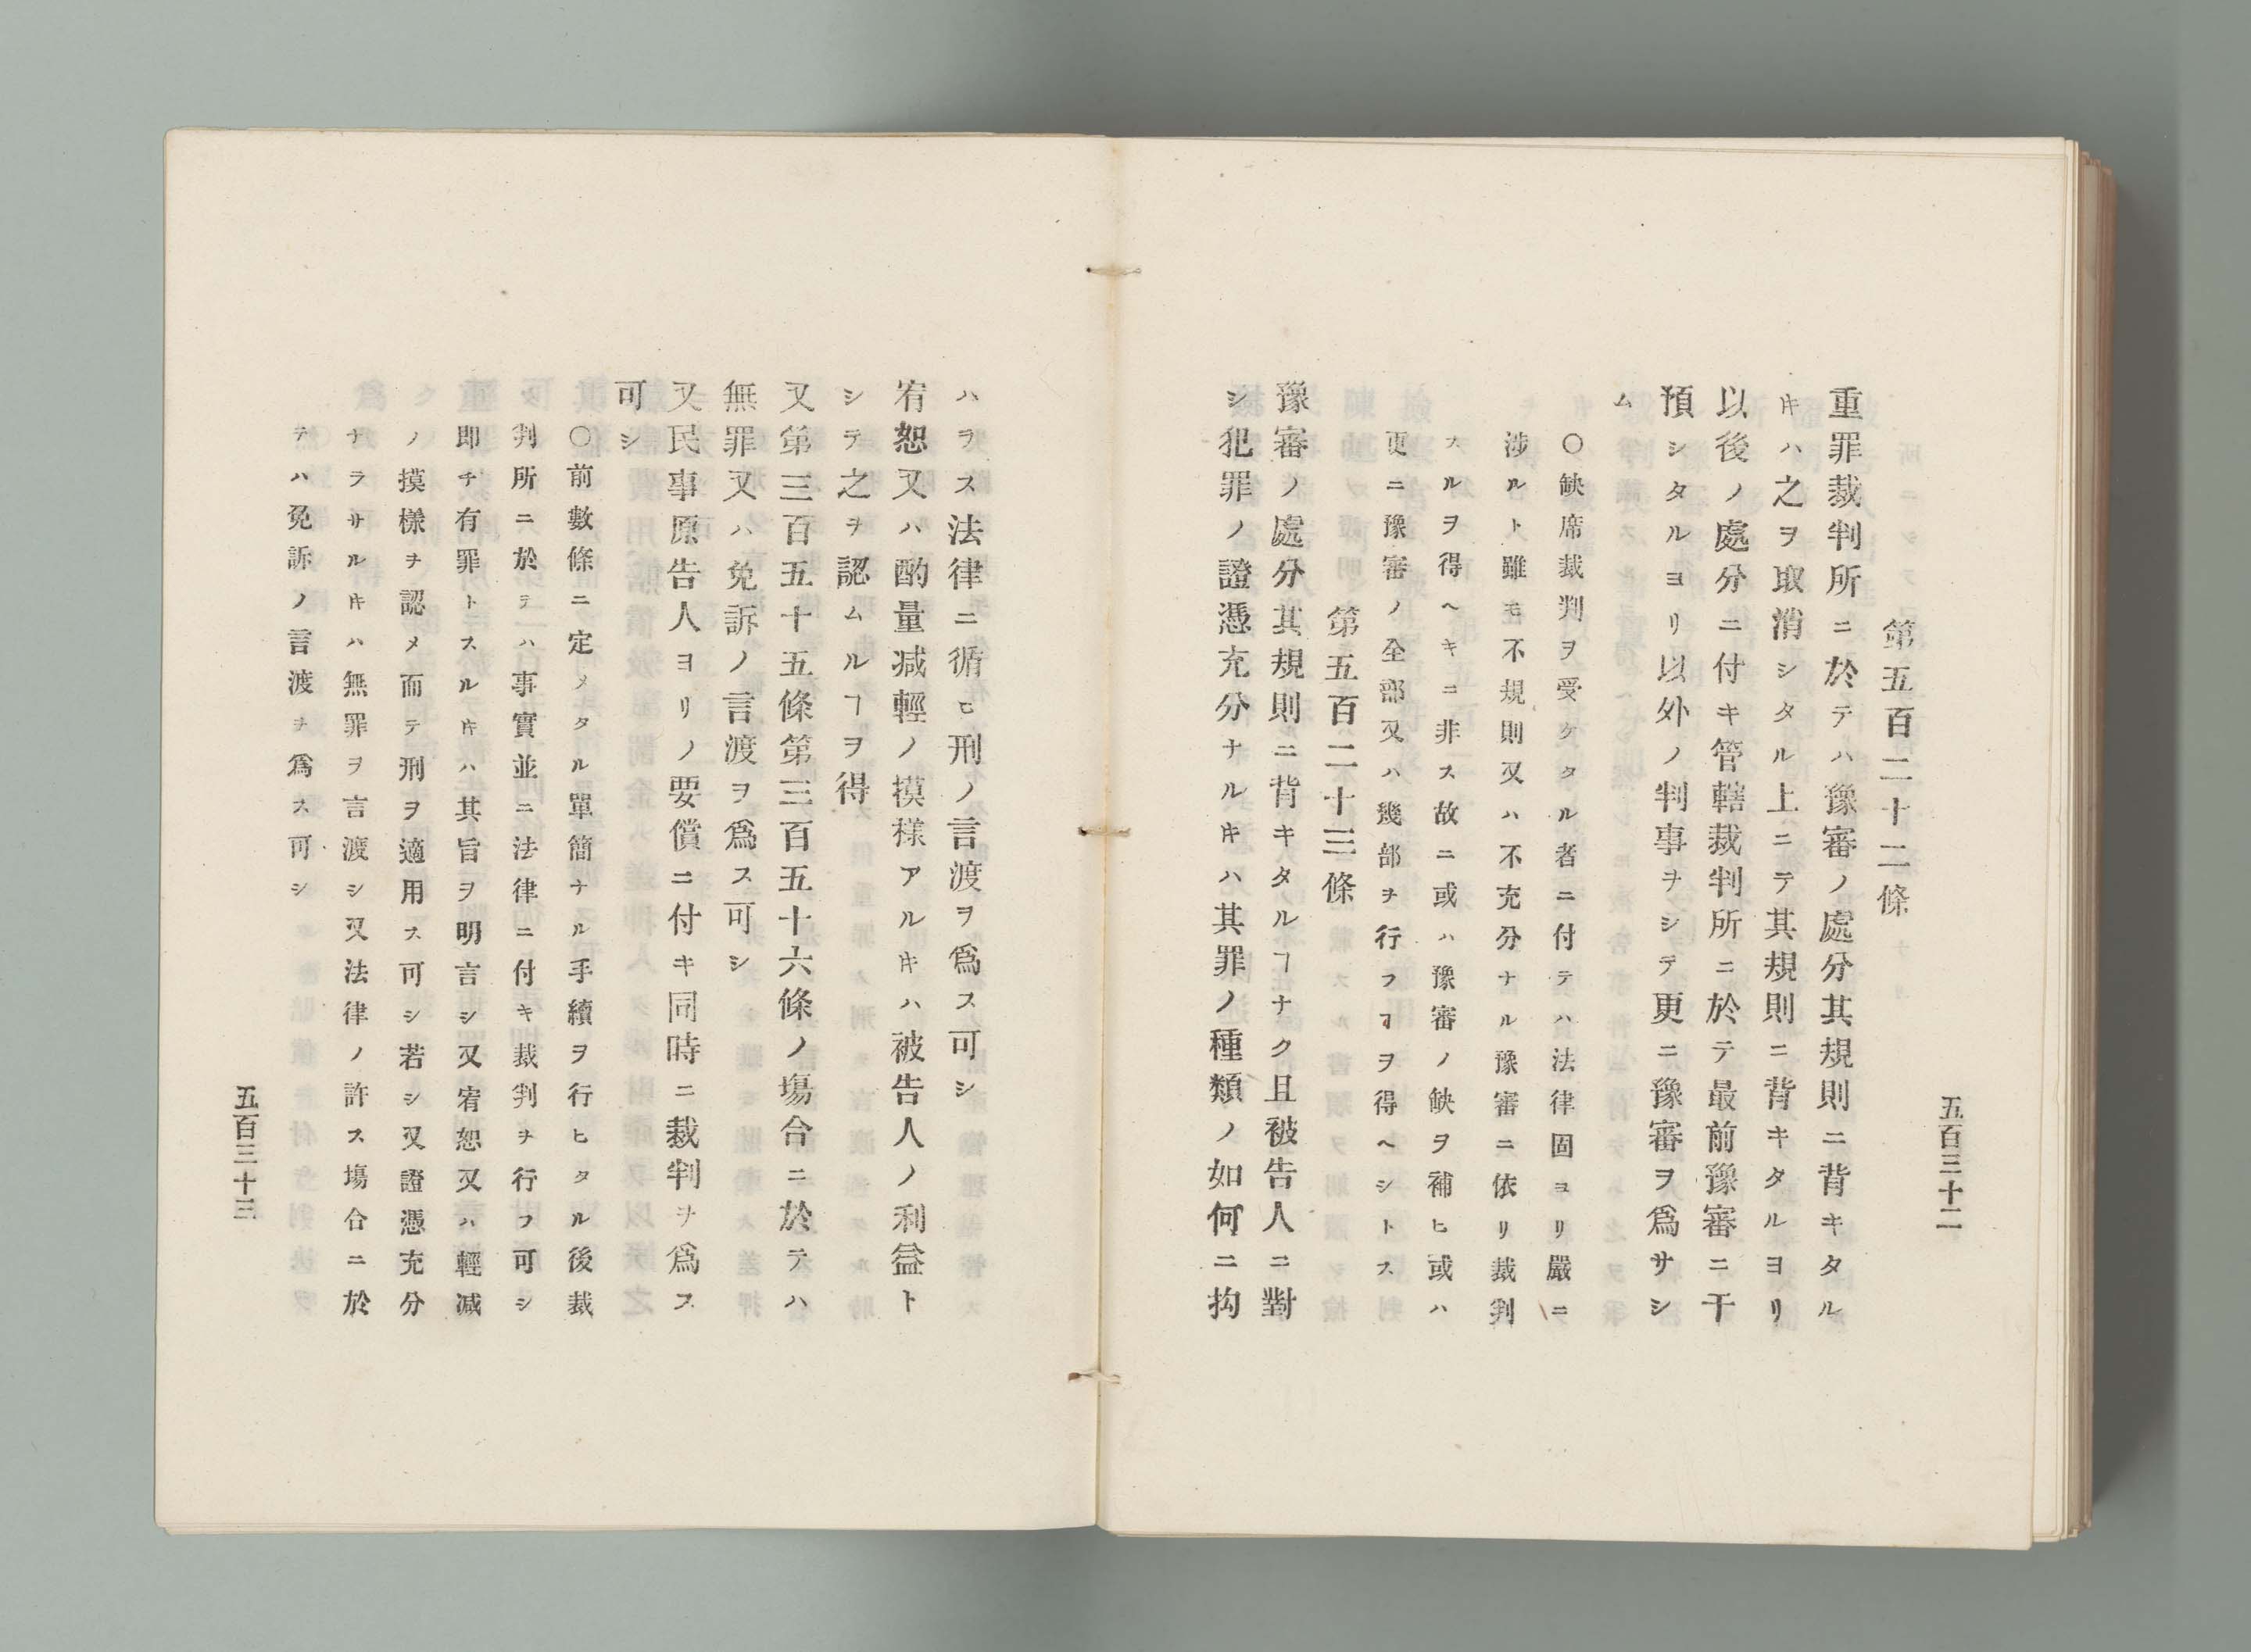 五百三十二
第五百二十二條
重罪裁判所ニ於テハ豫審ノ處分其規則ニ背キタル
ヰハ之ヲ取消シタル上ニテ其規則ニ背キタルヨリ
以後ノ處分ニ付キ管轄裁判所ニ於テ最前豫審ニ干
預シタルヨリ以外ノ判事ヲシテ更ニ豫審ヲ爲サシ
ム
〇缺席裁判ヲ受ケタル者ニ付テハ法律固ヨリ嚴ニ
渉ルト雖モ不規則又ハ不充分ナル豫審ニ依リ裁判
スルヲ得ヘキニ非ス故ニ或ハ豫審ノ缺ヲ補ヒ或ハ
更ニ豫審ノ全部又ハ幾部ヲ行フヿヲ得ヘシトス
第五百二十三條
豫審ノ處分其規則ニ背キタルヿナク且被告人ニ對
シ犯罪ノ證憑充分ナルヰハ其罪ノ種類ノ如何ニ拘
ハラス法律ニ循ヒ刑ノ言渡ヲ爲ス可シ
宥恕又ハ酌量減輕ノ摸樣アルヰハ被告人ノ利益ト
シテ之ヲ認ムルヿヲ得
又第三百五十五條第三百五十六條ノ塲合ニ於テハ
無罪又ハ免訴ノ言渡ヲ爲ス可シ
又民事原告人ヨリノ要償ニ付キ同時ニ裁判ヲ爲ス
可シ
〇前數條ニ定メタル單簡ナル手續ヲ行ヒタル後裁
判所ニ於テハ事實並ニ法律ニ付キ裁判ヲ行フ可シ
即チ有罪トスルヰハ其旨ヲ明言シ又宥恕又ハ輕減
ノ摸樣ヲ認メ而テ刑ヲ適用ス可シ若シ又證憑充分
ナラサルヰハ無罪ヲ言渡シ又法律ノ許ス塲合ニ於
テハ免訴ノ言渡ヲ爲ス可シ
五百三十三